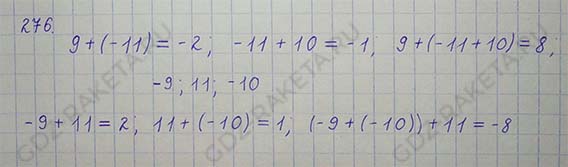 276.
9+(-11)=-2; -11+10=-1; 9+(-11+10)=8;
-9; 11; -10
-9+11=2; 11+(-10)=1; (-9+(-10))+11=-8
GDZRAKETA.RU
GDZRAKETA.RU
GDZRAKETA.RU
GDZRAKETA.RU